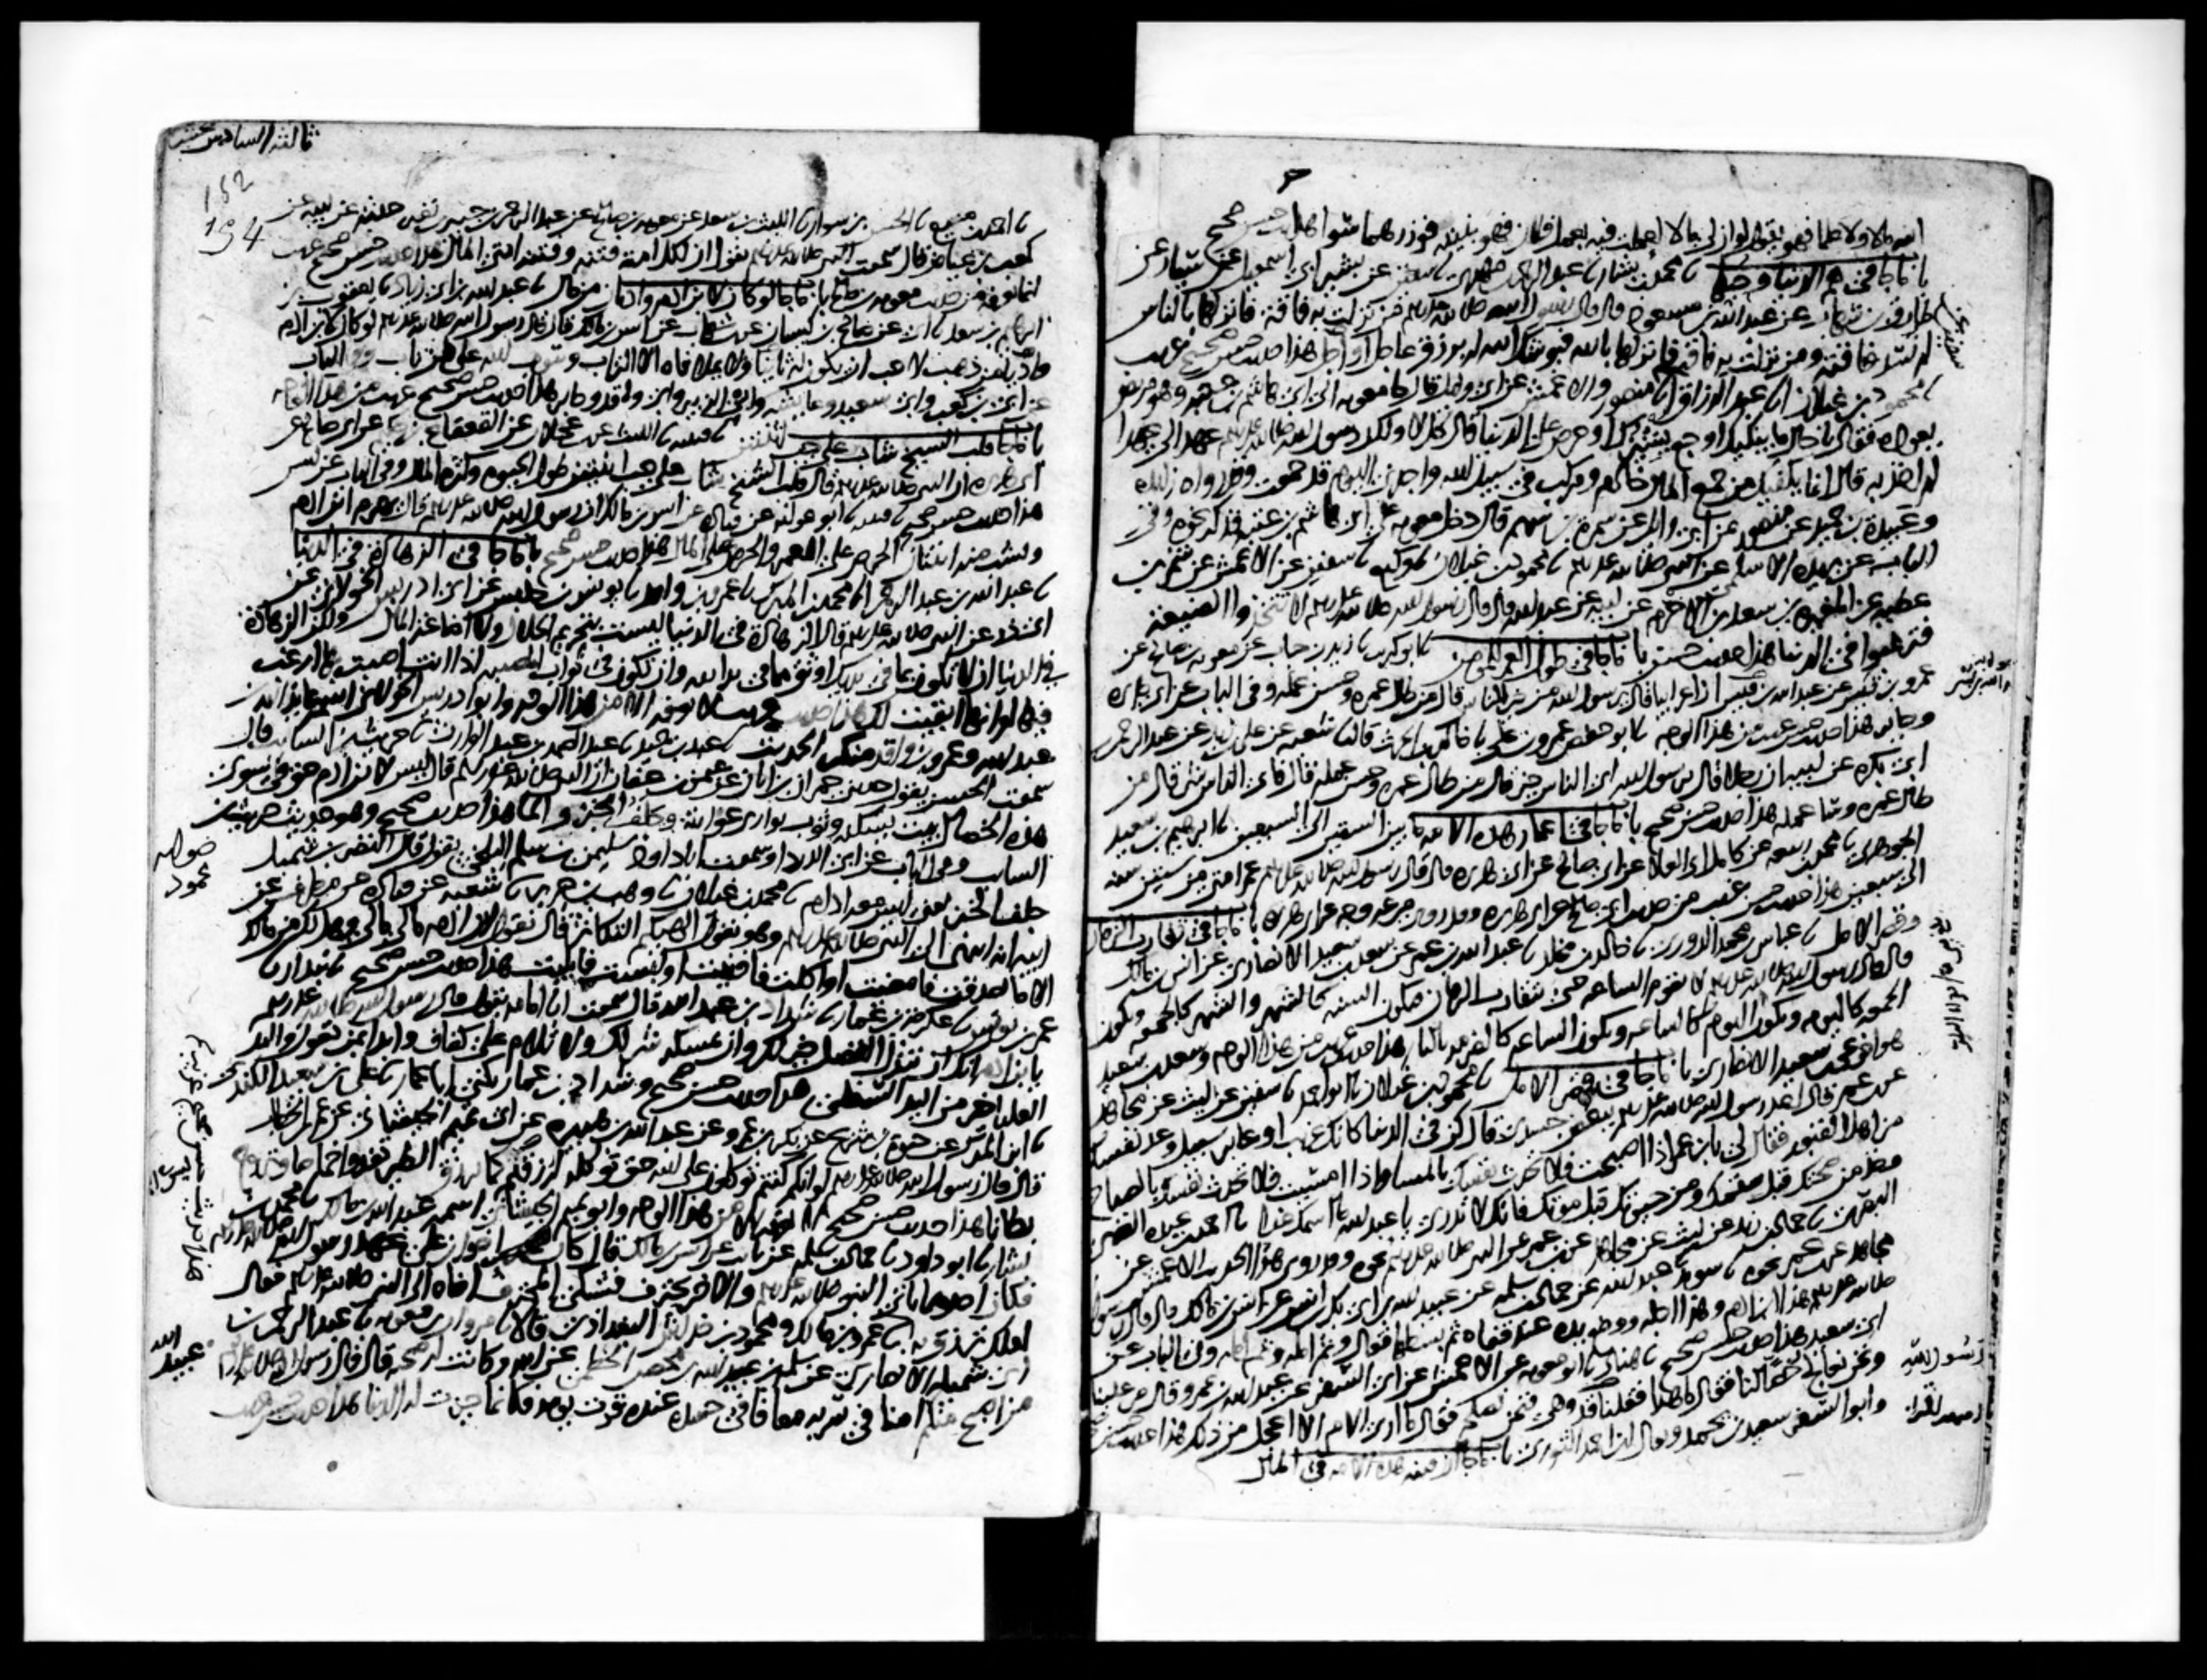 الله مالا ولا علما فهو يقول لو ان لي مالا لعملت فيه بعمل فلان فهو بنيته فوزرهما سوا هذا حديث حسن صحيح
باب ما جا في هم الدنيا وحبها نا محمد بن بشار نا عبد الرحمن بن مهدي نا سفين عن بشير ابي اسمعيل عن سيار عن
طارق بن شهاب عن عبد الله بن مسعود قال قال رسول الله صلى الله عليه وسلم من نزلت به فاقة فانزلها بالناس
لم تسد فاقته ومن نزلت به فاقة فانزلها بالله فيوشك الله له برزق عاجل او اجل هذا حديث حسن صحيح غريب
نا محمود بن غيلان نا عبد الرزاق انا سفين عن منصور والاعمش عن ابي وايل قال جا معوية الى ابي هاشم بن عتبة وهو مريض
يعوده فقال يا خال ما يبكيك اوجع يشئزك او حرص على الدنيا قال كل لا ولكن رسول الله صلى الله عليه وسلم عهد الي عهدا
لم اخذ به قال انما يكفيك من جمع المال خادم ومركب في سبيل الله واجدني اليوم قد جمعت وقد رواه زايدة
وعبيدة بن حميد عن منصور عن ابي وايل عن سمرة بن سهم قال دخل معوية على ابي هاشم بن عتبة فذكر نحوه وفي
الباب عن بريدة الاسلمي عن النبي صلى الله عليه وسلم نا محمود بن غيلان نا وكيع نا سفين عن الاعمش عن شمر بن
عطية عن المغيرة بن سعد بن الاخرم عن ابيه عن عبد الله قال قال رسول الله صلى الله عليه وسلم لا تتخذوا الضيعة
فترغبوا في الدنيا هذا حديث حسن باب ما جا في طول العمر للمومن نا ابو كريب نا زيد بن حباب عن معوية بن صالح عن
عمرو بن قيس عن عبد الله بن قيس ان اعرابيا قال يا رسول الله من خير الناس قال من طال عمره وحسن عمله وفي الباب عن ابي هريرة
وجابر هذا حديث حسن غريب من هذا الوجه نا ابو حفص عمرو بن علي نا خالد بن الحرث نا شعبة عن علي بن زيد عن عبد الرحمن
ابن ابي بكرة عن ابيه ان رجلا قال يا رسول الله اي الناس خير قال من طال عمره وحسن عمله قال فاي الناس شر قال من
طال عمره وساء عمله هذا حديث حسن صحيح باب ما جا في اعمار هذه الامة ما بين الستين الى السبعين نا ابرهيم بن سعيد
الجوهري نا محمد بن ربيعة عن كامل ابي العلا عن ابي صالح عن ابي هريرة قال قال رسول الله صلى الله عليه وسلم عمر امتي من ستين سنة
الى سبعين هذا حديث حسن غريب من حديث ابي صالح عن ابي هريرة وقد روي من غير وجه عن ابي هريرة باب ما جا في تقارب الزمان
وقصر الامل نا عباس بن محمد الدوري نا خالد بن مخلد نا عبد الله بن عمر عن سعد بن سعيد الانصاري عن انس بن مالك
قال قال رسول الله صلى الله عليه وسلم لا تقوم الساعة حتى يتقارب الزمان فتكون السنة كالشهر والشهر كالجمعة وتكون
الجمعة كاليوم ويكون اليوم كالساعة وتكون الساعة كالضرمة بالنار هذا حديث غريب من هذا الوجه وسعد بن سعيد
هو اخو يحيى بن سعيد الانصاري باب ما جا في قصر الامل نا محمود بن غيلان نا ابو احمد نا سفين عن ليث عن مجاهد
عن ابن عمر قال اخذ رسول الله صلى الله عليه وسلم ببعض جسدي قال كن في الدنيا كانك غريب او عابر سبيل وعد نفسك
من اهل القبور فقال لي يا ابن عمر اذا اصبحت فلا تحدث نفسك بالمسا واذا امسيت فلا تحدث نفسك بالصباح
وخذ من صحتك قبل سقمك ومن حيوتك قبل موتك فانك لا تدري يا عبد الله ما اسمك غدا نا احمد بن عبدة الضبي
البصري نا حماد بن زيد عن ليث عن مجاهد عن ابن عمر عن النبي صلى الله عليه وسلم نحوه وقد روى هذا الحديث الاعمش عن
مجاهد عن ابن عمر نحوه نا سويد نا عبد الله عن حماد بن سلمة عن عبيد الله بن ابي بكر بن انس عن انس بن مالك قال قال رسول الله
صلى الله عليه وسلم هذا ابن ادم وهذا اجله ووضع يده عند قفاه ثم بسطها فقال وثم امله وثم امله وفي الباب عن
ابي سعيد هذا حديث حسن صحيح نا هناد نا ابو معوية عن الاعمش عن ابي السفر عن عبد الله بن عمرو قال مر علينا
ونحن نعالج خصا لنا فقال ما هذا فقلنا قد وهى فنحن نصلحه فقال ما ارى الامر الا اعجل من ذلك هذا حديث حسن صحيح
وابو السفر سعيد بن يحمد ويقال ابن احمد الثوري باب ما جا ان فتنة هذه الامة في المال
ثالثة السادس عشر
152
194
نا احمد بن منيع نا الحسن بن سوار نا الليث بن سعد عن معوية بن صالح عن عبد الرحمن بن جبير بن نفير حدثه عن ابيه عن
كعب بن عياض قال سمعت النبي صلى الله عليه وسلم يقول ان لكل امة فتنة وفتنة امتي المال هذا حديث حسن صحيح غريب
انما نعرفه من حديث معوية بن صالح باب ما جا لو كان لابن ادم واديان من مال نا عبد الله بن ابي زياد نا يعقوب بن
ابرهيم بن سعد نا ابي عن صالح بن كيسان عن ابن شهاب عن انس بن مالك قال قال رسول الله صلى الله عليه وسلم لو كان لابن ادم
واديا من ذهب لاحب ان يكون له ثانيا ولا يملا فاه الا التراب ويتوب الله على من تاب وفي الباب
عن ابي بن كعب وابي سعيد وعايشة وابن الزبير وابي واقد وجابر هذا حديث حسن صحيح غريب من هذا الوجه
باب ما جا قلب الشيخ شاب على حب اثنتين نا قتيبة نا الليث عن ابن عجلان عن القعقاع بن حكيم عن ابي صالح عن
ابي هريرة ان النبي صلى الله عليه وسلم قال قلب الشيخ شاب على حب اثنتين طول الحيوة وكثرة المال وفي الباب عن انس
هذا حديث حسن صحيح نا قتيبة نا ابو عوانة عن قتادة عن انس بن مالك ان رسول الله صلى الله عليه وسلم قال يهرم ابن ادم
ويشب منه اثنتان الحرص على العمر والحرص على المال هذا حديث حسن صحيح باب ما جا في الزهادة في الدنيا
نا عبد الله بن عبد الرحمن انا محمد بن المبارك نا عمرو بن واقد نا يونس بن حلبس عن ابي ادريس الخولاني عن
ابي ذر عن النبي صلى الله عليه وسلم قال الزهادة في الدنيا ليست بتحريم الحلال ولا اضاعة المال ولكن الزهادة
في الدنيا ان لا تكون بما في يديك اوثق مما في يد الله وان تكون في ثواب المصيبة اذا انت اصبت بها ارغب
فيها لو انها ابقيت لك هذا حديث غريب لا نعرفه الا من هذا الوجه وابو ادريس الخولاني اسمه عايذ الله بن
عبد الله وعمرو بن واقد منكر الحديث نا عبد بن حميد نا عبد الصمد بن عبد الوارث نا حريث بن السايب قال
سمعت الحسن يقول حدثني حمران بن ابان عن عثمن بن عفان ان النبي صلى الله عليه وسلم قال ليس لابن ادم حق في سوى
هذه الخصال بيت يسكنه وثوب يواري عورته وجلف الخبز والما هذا حديث صحيح وهو حديث حريث بن
السايب وسمعت ابا داود سليمن بن سلم البلخي يقول قال النضر بن شميل
جلف الخبز يعني ليس معه ادام نا محمود بن غيلان نا وهب بن جرير نا شعبة عن قتادة عن مطرف عن
ابيه انه انتهى الى النبي صلى الله عليه وسلم وهو يقول الهيكم التكاثر قال يقول ابن ادم مالي مالي وهل لك من مالك
الا ما تصدقت فامضيت او اكلت فافنيت او لبست فابليت هذا حديث حسن صحيح نا بندار نا
عمر بن يونس نا عكرمة بن عمار نا شداد بن عبد الله قال سمعت ابا امامة يقول قال رسول الله صلى الله عليه وسلم
يا ابن ادم انك ان تبذل الفضل خير لك وان تمسكه شر لك ولا تلام على كفاف وابدا بمن تعول واليد
العليا خير من اليد السفلى هذا حديث حسن صحيح وشداد بن عبد الله يكنى ابا عمار نا علي بن سعيد الكندي
نا ابن المبارك عن حيوة بن شريح عن بكر بن عمرو عن عبد الله بن هبيرة عن ابي تميم الجيشاني عن عمر بن الخطاب
قال قال رسول الله صلى الله عليه وسلم لو انكم كنتم توكلون على الله حق توكله لرزقتم كما ترزق الطير تغدوا خماصا وتروح
بطانا هذا حديث حسن صحيح لا نعرفه الا من هذا الوجه وابو تميم الجيشاني اسمه عبد الله بن مالك نا محمد بن
بشار نا ابو داود نا حماد بن سلمة عن ثابت عن انس بن مالك قال كان اخوان على عهد رسول الله صلى الله عليه وسلم
فكان احدهما ياتي النبي صلى الله عليه وسلم والاخر يحترف فشكى المحترف اخاه الى النبي صلى الله عليه وسلم فقال
لعلك ترزق به نا عمرو بن مالك ومحمود بن خداش البغدادي قالا نا مروان بن معوية نا عبد الرحمن بن
ابي شميلة الانصاري عن سلمة بن عبيد الله بن محصن الخطمي عن ابيه وكانت له صحبة قال قال رسول الله صلى الله عليه وسلم
من اصبح منكم امنا في سربه معافا في جسده عنده قوت يومه فكانما حيزت له الدنيا هذا حديث حسن غريب
عبيد الله